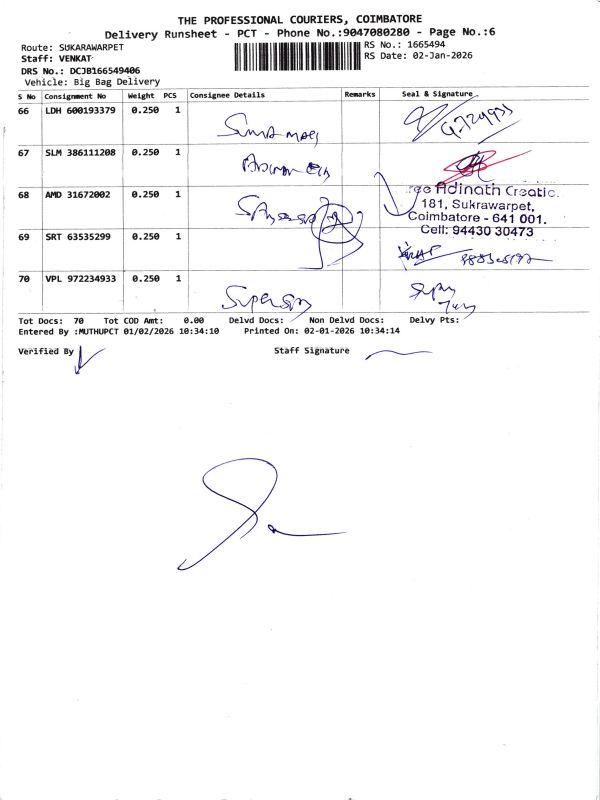 THE PROFESSIONAL COURIERS, COIMBATORE
Delivery Runsheet - PCT - Phone No.:9047080280 - Page No.:6
Route: SUKARAWARPET
RS No.: 1665494
Staff: VENKAT
RS Date: 02-Jan-2026
DRS No.: DCJB166549406
Vehicle: Big Bag Delivery
S No Consignment No Weight PCS Consignee Details Remarks Seal & Signature
66 LDH 600193379 0.250 1
67 SLM 386111208 0.250 1
68 AMD 31672002 0.250 1
ree Adinath Creatio.
181, Sukrawarpet,
Coimbatore - 641 001.
Cell: 94430 30473
69 SRT 63535299 0.250 1
70 VPL 972234933 0.250 1
Tot Docs: 70 Tot COD Amt: 0.00 Delvd Docs: Non Delvd Docs: Delvy Pts:
Entered By :MUTHUPCT 01/02/2026 10:34:10 Printed On: 02-01-2026 10:34:14
Verified By
Staff Signature